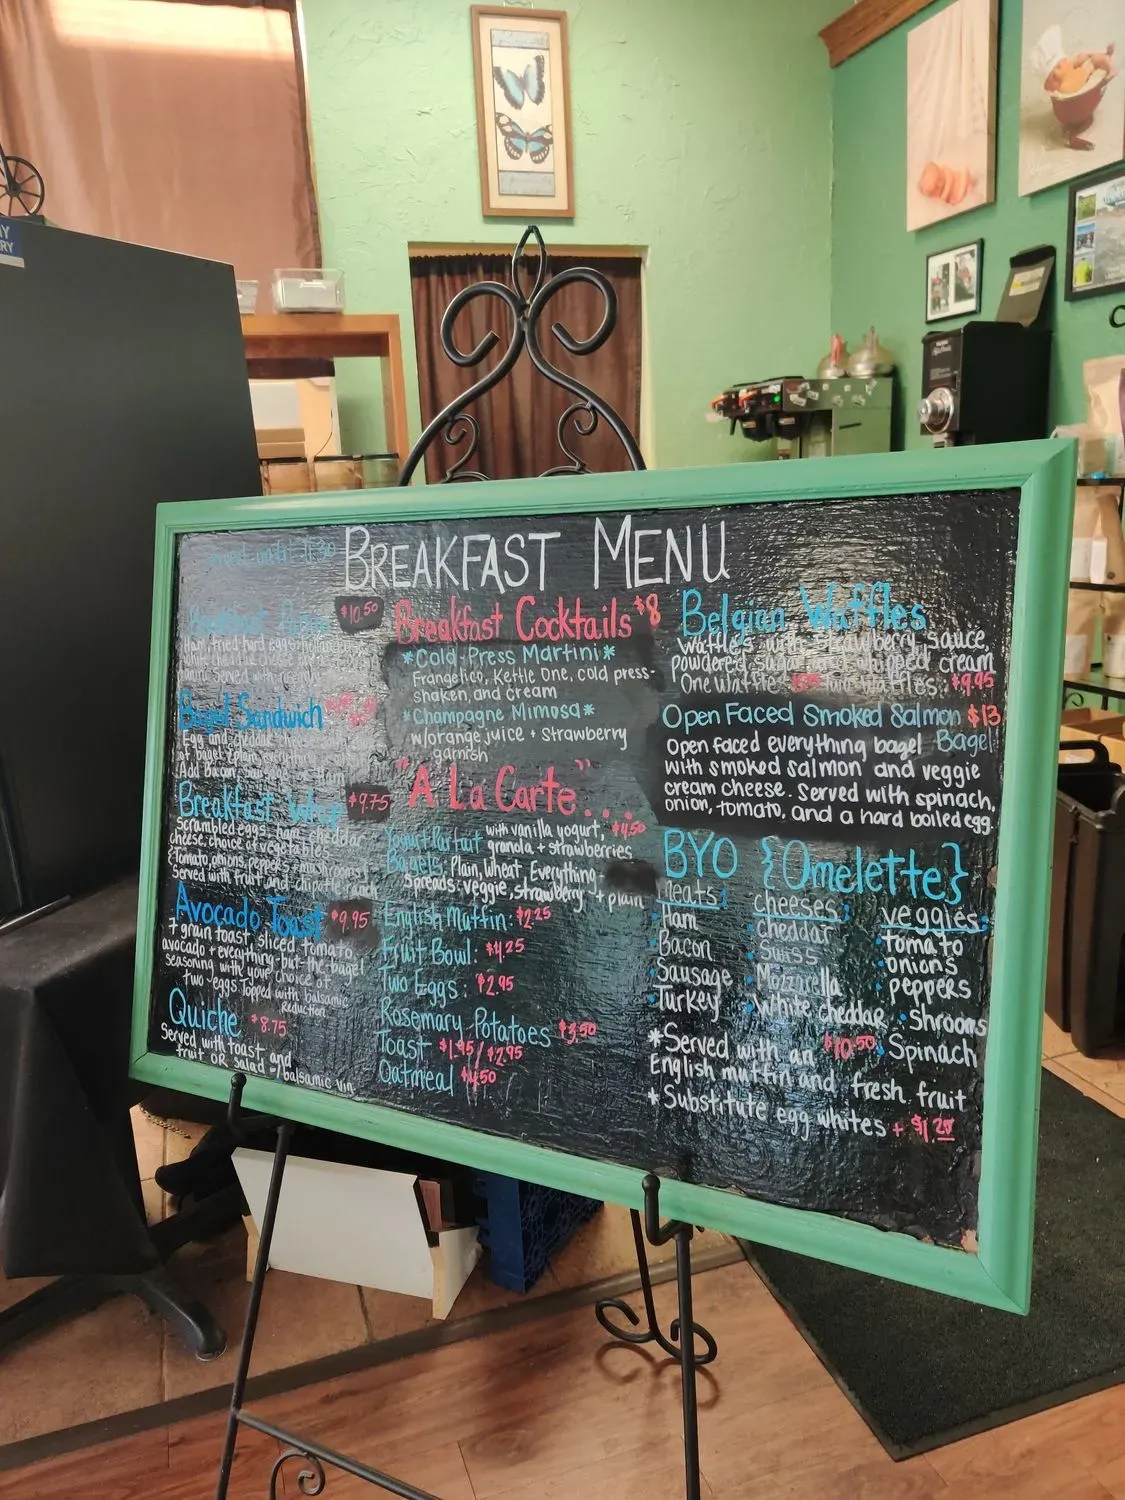 Served until 11:30
BREAKFAST MENU
$10.50
Bagel Sandwich
Egg and
Add Bacon
Breakfast Wrap $9.75
Scrambled eggs, ham, cheddar
cheese, choice of vegetables
(tomato, onions, peppers, mushrooms)
Served with fruit and chipotle
Avocado Toast $9.95
7 grain toast, sliced tomato
avocado + everything-but-the-bagel
seasoning with your choice of
two eggs Topped with balsamic
Reduction
Quiche $8.75
Served with toast and
fruit OR Salad balsamic vin
Breakfast Cocktails $8
*Cold-Press Martini*
Frangelico, Kettle One, cold press-
shaken, and cream
*Champagne Mimosa*
w/orange juice + strawberry
garnish
"A La Carte"...
Yogurt Parfait with vanilla yogurt, $4.50
granola + strawberries
Bagels: Plain, Wheat, Everything,
Spreads: veggie, strawberry + plain
English Muffin: $2.25
Fruit Bowl: $4.25
Two Eggs: $2.95
Rosemary Potatoes $3.50
Toast $1.95/$2.95
Oatmeal $4.50
Belgian Waffles
Waffles with strawberry sauce,
powdered sugar and whipped cream
One Waffle: Two Waffles: $9.95
Open Faced Smoked Salmon $13
Bagel
Open faced everything bagel
with smoked salmon and veggie
cream cheese. Served with spinach,
onion, tomato, and a hard boiled egg.
BYO {Omelette}
meats: cheeses: veggies:
Ham cheddar tomato
Bacon Swiss onions
Sausage Mozzarella peppers
Turkey White cheddar shrooms
Spinach
*Served with an $10.50
English muffin and fresh fruit
*Substitute egg whites + $1.25